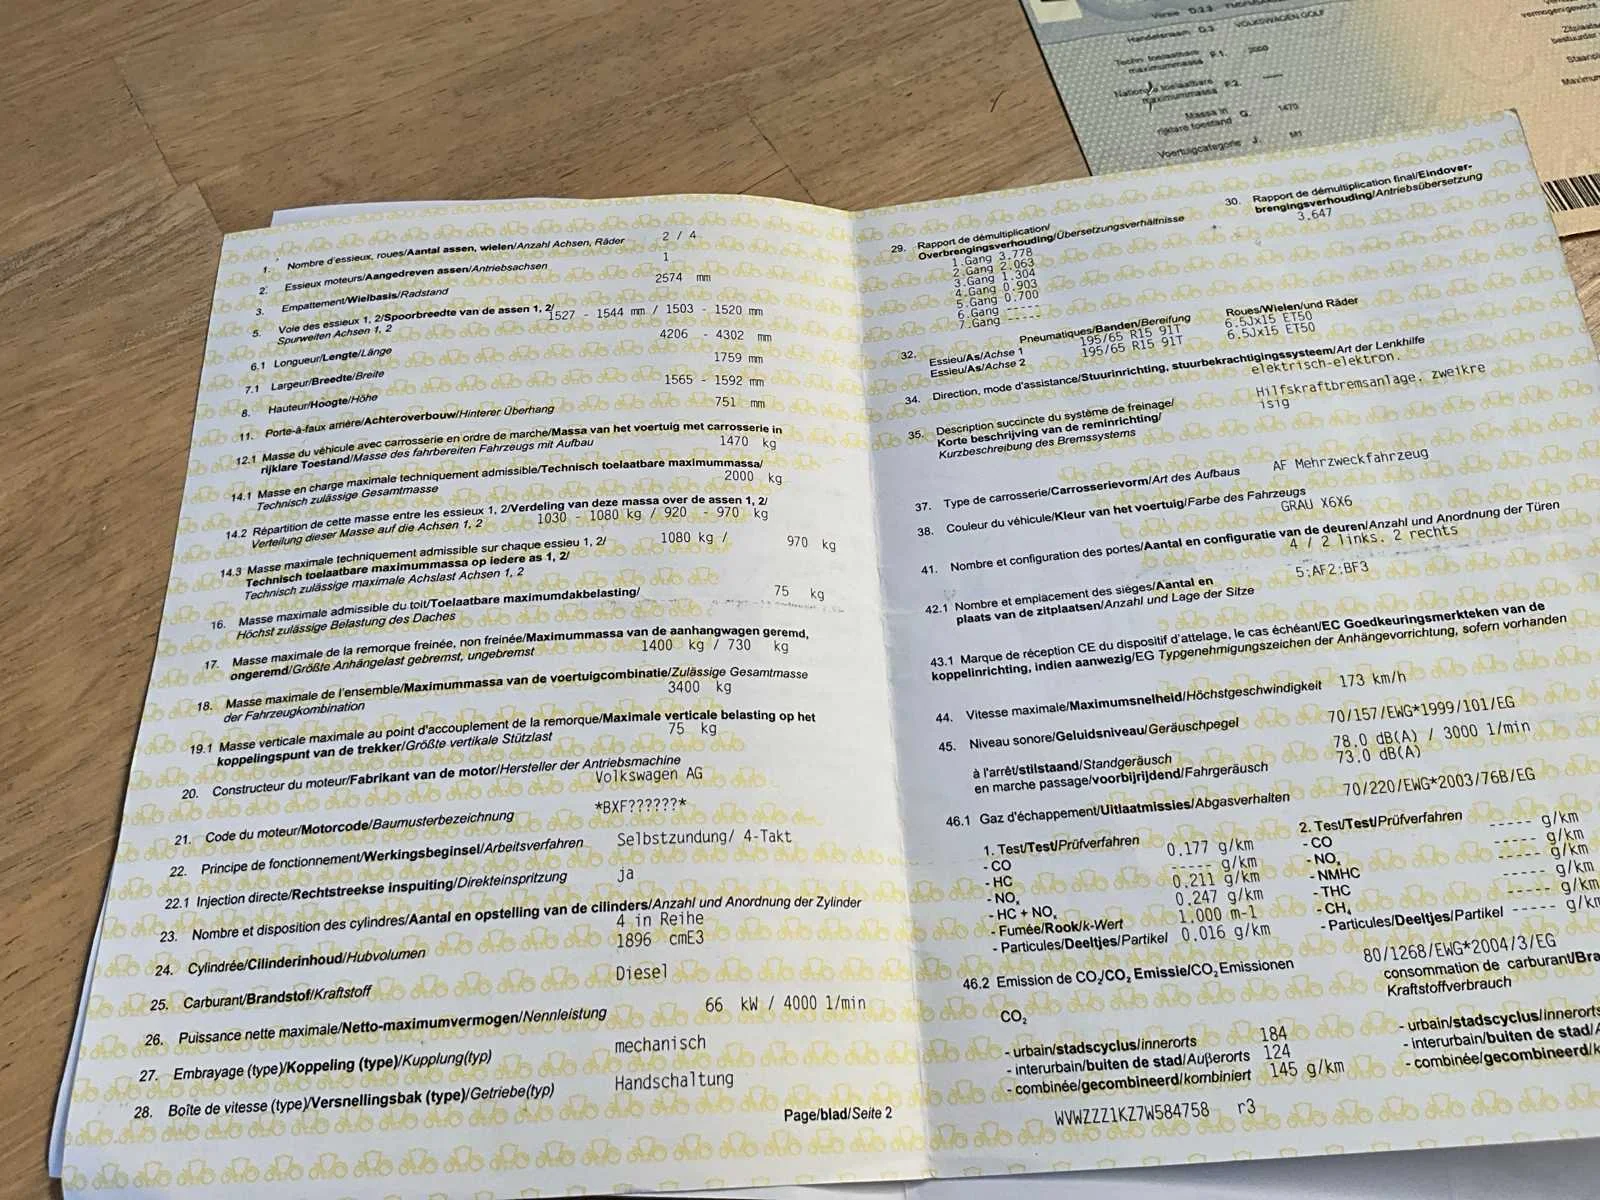 Handelsnaam D.3 VOLKSWAGEN GOLF
Techn. toelaatbare
maximummassa F.1. 2000
Nationale toelaatbare
maximummassa F.2. -----
Massa in
rijklare toestand G. 1470
Voertuigcategorie J. M1
1. Nombre d'essieux, roues/Aantal assen, wielen/Anzahl Achsen, Räder 2 / 4
2. Essieux moteurs/Aangedreven assen/Antriebsachsen 1
3. Empattement/Wielbasis/Radstand 2574 mm
5. Voie des essieux 1, 2/Spoorbreedte van de assen 1, 2/ 1527 - 1544 mm / 1503 - 1520 mm
Spurweiten Achsen 1, 2
6.1 Longueur/Lengte/Länge 4206 - 4302 mm
7.1 Largeur/Breedte/Breite 1759 mm
8. Hauteur/Hoogte/Höhe 1565 - 1592 mm
11. Porte-à-faux arrière/Achteroverbouw/Hinterer Überhang 751 mm
12.1 Masse du véhicule avec carrosserie en ordre de marche/Massa van het voertuig met carrosserie in
rijklare Toestand/Masse des fahrbereiten Fahrzeugs mit Aufbau 1470 kg
14.1 Masse en charge maximale techniquement admissible/Technisch toelaatbare maximummassa/
Technisch zulässige Gesamtmasse 2000 kg
14.2 Répartition de cette masse entre les essieux 1, 2/Verdeling van deze massa over de assen 1, 2/
Verteilung dieser Masse auf die Achsen 1, 2 1030 - 1080 kg / 920 - 970 kg
14.3 Masse maximale techniquement admissible sur chaque essieu 1, 2/ 1080 kg / 970 kg
Technisch toelaatbare maximummassa op iedere as 1, 2/
Technisch zulässige maximale Achslast Achsen 1, 2
16. Masse maximale admissible du toit/Toelaatbare maximumdakbelasting/ 75 kg
Höchst zulässige Belastung des Daches
17. Masse maximale de la remorque freinée, non freinée/Maximummassa van de aanhangwagen geremd,
ongeremd/Größte Anhängelast gebremst, ungebremst 1400 kg / 730 kg
18. Masse maximale de l'ensemble/Maximummassa van de voertuigcombinatie/Zulässige Gesamtmasse
der Fahrzeugkombination 3400 kg
19.1 Masse verticale maximale au point d'accouplement de la remorque/Maximale verticale belasting op het
koppelingspunt van de trekker/Größte vertikale Stützlast 75 kg
20. Constructeur du moteur/Fabrikant van de motor/Hersteller der Antriebsmachine
Volkswagen AG
21. Code du moteur/Motorcode/Baumusterbezeichnung *BXF??????*
22. Principe de fonctionnement/Werkingsbeginsel/Arbeitsverfahren Selbstzundung/ 4-Takt
22.1 Injection directe/Rechtstreekse inspuiting/Direkteinspritzung ja
23. Nombre et disposition des cylindres/Aantal en opstelling van de cilinders/Anzahl und Anordnung der Zylinder
4 in Reihe
24. Cylindrée/Cilinderinhoud/Hubvolumen 1896 cmE3
25. Carburant/Brandstof/Kraftstoff Diesel
26. Puissance nette maximale/Netto-maximumvermogen/Nennleistung 66 kW / 4000 1/min
27. Embrayage (type)/Koppeling (type)/Kupplung(typ) mechanisch
28. Boîte de vitesse (type)/Versnellingsbak (type)/Getriebe(typ) Handschaltung
Page/blad/Seite 2
29. Rapport de démultiplication/
Overbrengingsverhouding/Übersetzungsverhältnisse
1.Gang 3.778
2.Gang 2.063
3.Gang 1.304
4.Gang 0.903
5.Gang 0.700
6.Gang -----
7.Gang -----
30. Rapport de démultiplication final/Eindover-
brengingsverhouding/Antriebsübersetzung
3.647
Pneumatiques/Banden/Bereifung Roues/Wielen/und Räder
32. Essieu/As/Achse 1 195/65 R15 91T 6.5Jx15 ET50
Essieu/As/Achse 2 195/65 R15 91T 6.5Jx15 ET50
34. Direction, mode d'assistance/Stuurinrichting, stuurbekrachtigingssysteem/Art der Lenkhilfe
elektrisch-elektron.
35. Description succincte du système de freinage/ Hilfskraftbremsanlage, zweikre
Korte beschrijving van de reminrichting/ isig
Kurzbeschreibung des Bremssystems
37. Type de carrosserie/Carrosserievorm/Art des Aufbaus AF Mehrzweckfahrzeug
38. Couleur du véhicule/Kleur van het voertuig/Farbe des Fahrzeugs
GRAU X6X6
41. Nombre et configuration des portes/Aantal en configuratie van de deuren/Anzahl und Anordnung der Türen
4 / 2 links. 2 rechts
42.1 Nombre et emplacement des siéges/Aantal en 5:AF2:BF3
plaats van de zitplaatsen/Anzahl und Lage der Sitze
43.1 Marque de réception CE du dispositif d'attelage, le cas échéant/EC Goedkeuringsmerkteken van de
koppelinrichting, indien aanwezig/EG Typgenehmigungszeichen der Anhängevorrichtung, sofern vorhanden
44. Vitesse maximale/Maximumsnelheid/Höchstgeschwindigkeit 173 km/h
45. Niveau sonore/Geluidsniveau/Geräuschpegel 70/157/EWG*1999/101/EG
à l'arrêt/stilstaand/Standgeräusch 78.0 dB(A) / 3000 1/min
en marche passage/voorbijrijdend/Fahrgeräusch 73.0 dB(A)
46.1 Gaz d'échappement/Uitlaatmissies/Abgasverhalten 70/220/EWG*2003/76B/EG
1. Test/Test/Prüfverfahren
- CO 0.177 g/km
- HC ---- g/km
- NOx 0.211 g/km
- HC + NOx 0.247 g/km
- Fumée/Rook/k-Wert 1.000 m-1
- Particules/Deeltjes/Partikel 0.016 g/km
2. Test/Test/Prüfverfahren
- CO ----- g/km
- NOx ----- g/km
- NMHC ----- g/km
- THC ----- g/km
- CH4 ----- g/km
- Particules/Deeltjes/Partikel ----- g/km
46.2 Emission de CO2/CO2 Emissie/CO2 Emissionen 80/1268/EWG*2004/3/EG
consommation de carburant/Bra
Kraftstoffverbrauch
CO2
- urbain/stadscyclus/innerorts 184
- interurbain/buiten de stad/Außerorts 124
- combinée/gecombineerd/kombiniert 145 g/km
- urbain/stadscyclus/innerorts
- interurbain/buiten de stad/
- combinée/gecombineerd/k
WVWZZZ1KZ7W584758 r3